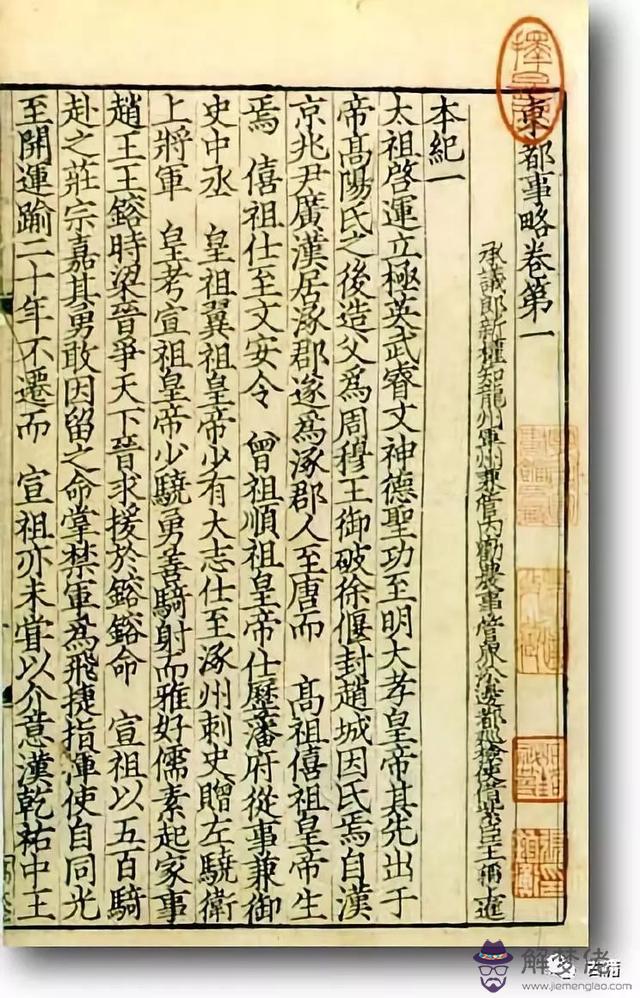 東都事略卷第一
承議郎新權知龍州軍州兼管內勸農事管界沿邊都巡檢使借紫臣王稱上進
本紀一
太祖啓運立極英武睿文神德聖功至明大孝皇帝其先出于
帝髙陽氏之後造父爲周穆王御破徐偃封趙城因氏焉自漢
京兆尹廣漢居涿郡遂爲涿郡人至唐而 髙祖僖祖皇帝生
焉 僖祖仕至文安令 曾祖順祖皇帝仕歷藩府從事兼御
史中丞 皇祖翼祖皇帝少有大志仕至涿州刺史贈左驍衛
上將軍 皇考宣祖皇帝少驍勇善騎射而雅好儒素起家事
趙王王鎔時梁晉爭天下晉求援於鎔鎔命 宣祖以五百騎
赴之莊宗嘉其勇敢因留之命掌禁軍爲飛捷指揮使自同光
至開運踰二十年不遷而 宣祖亦未嘗以介意漢乾祐中王
解梦佬
www.jiemenglao.com